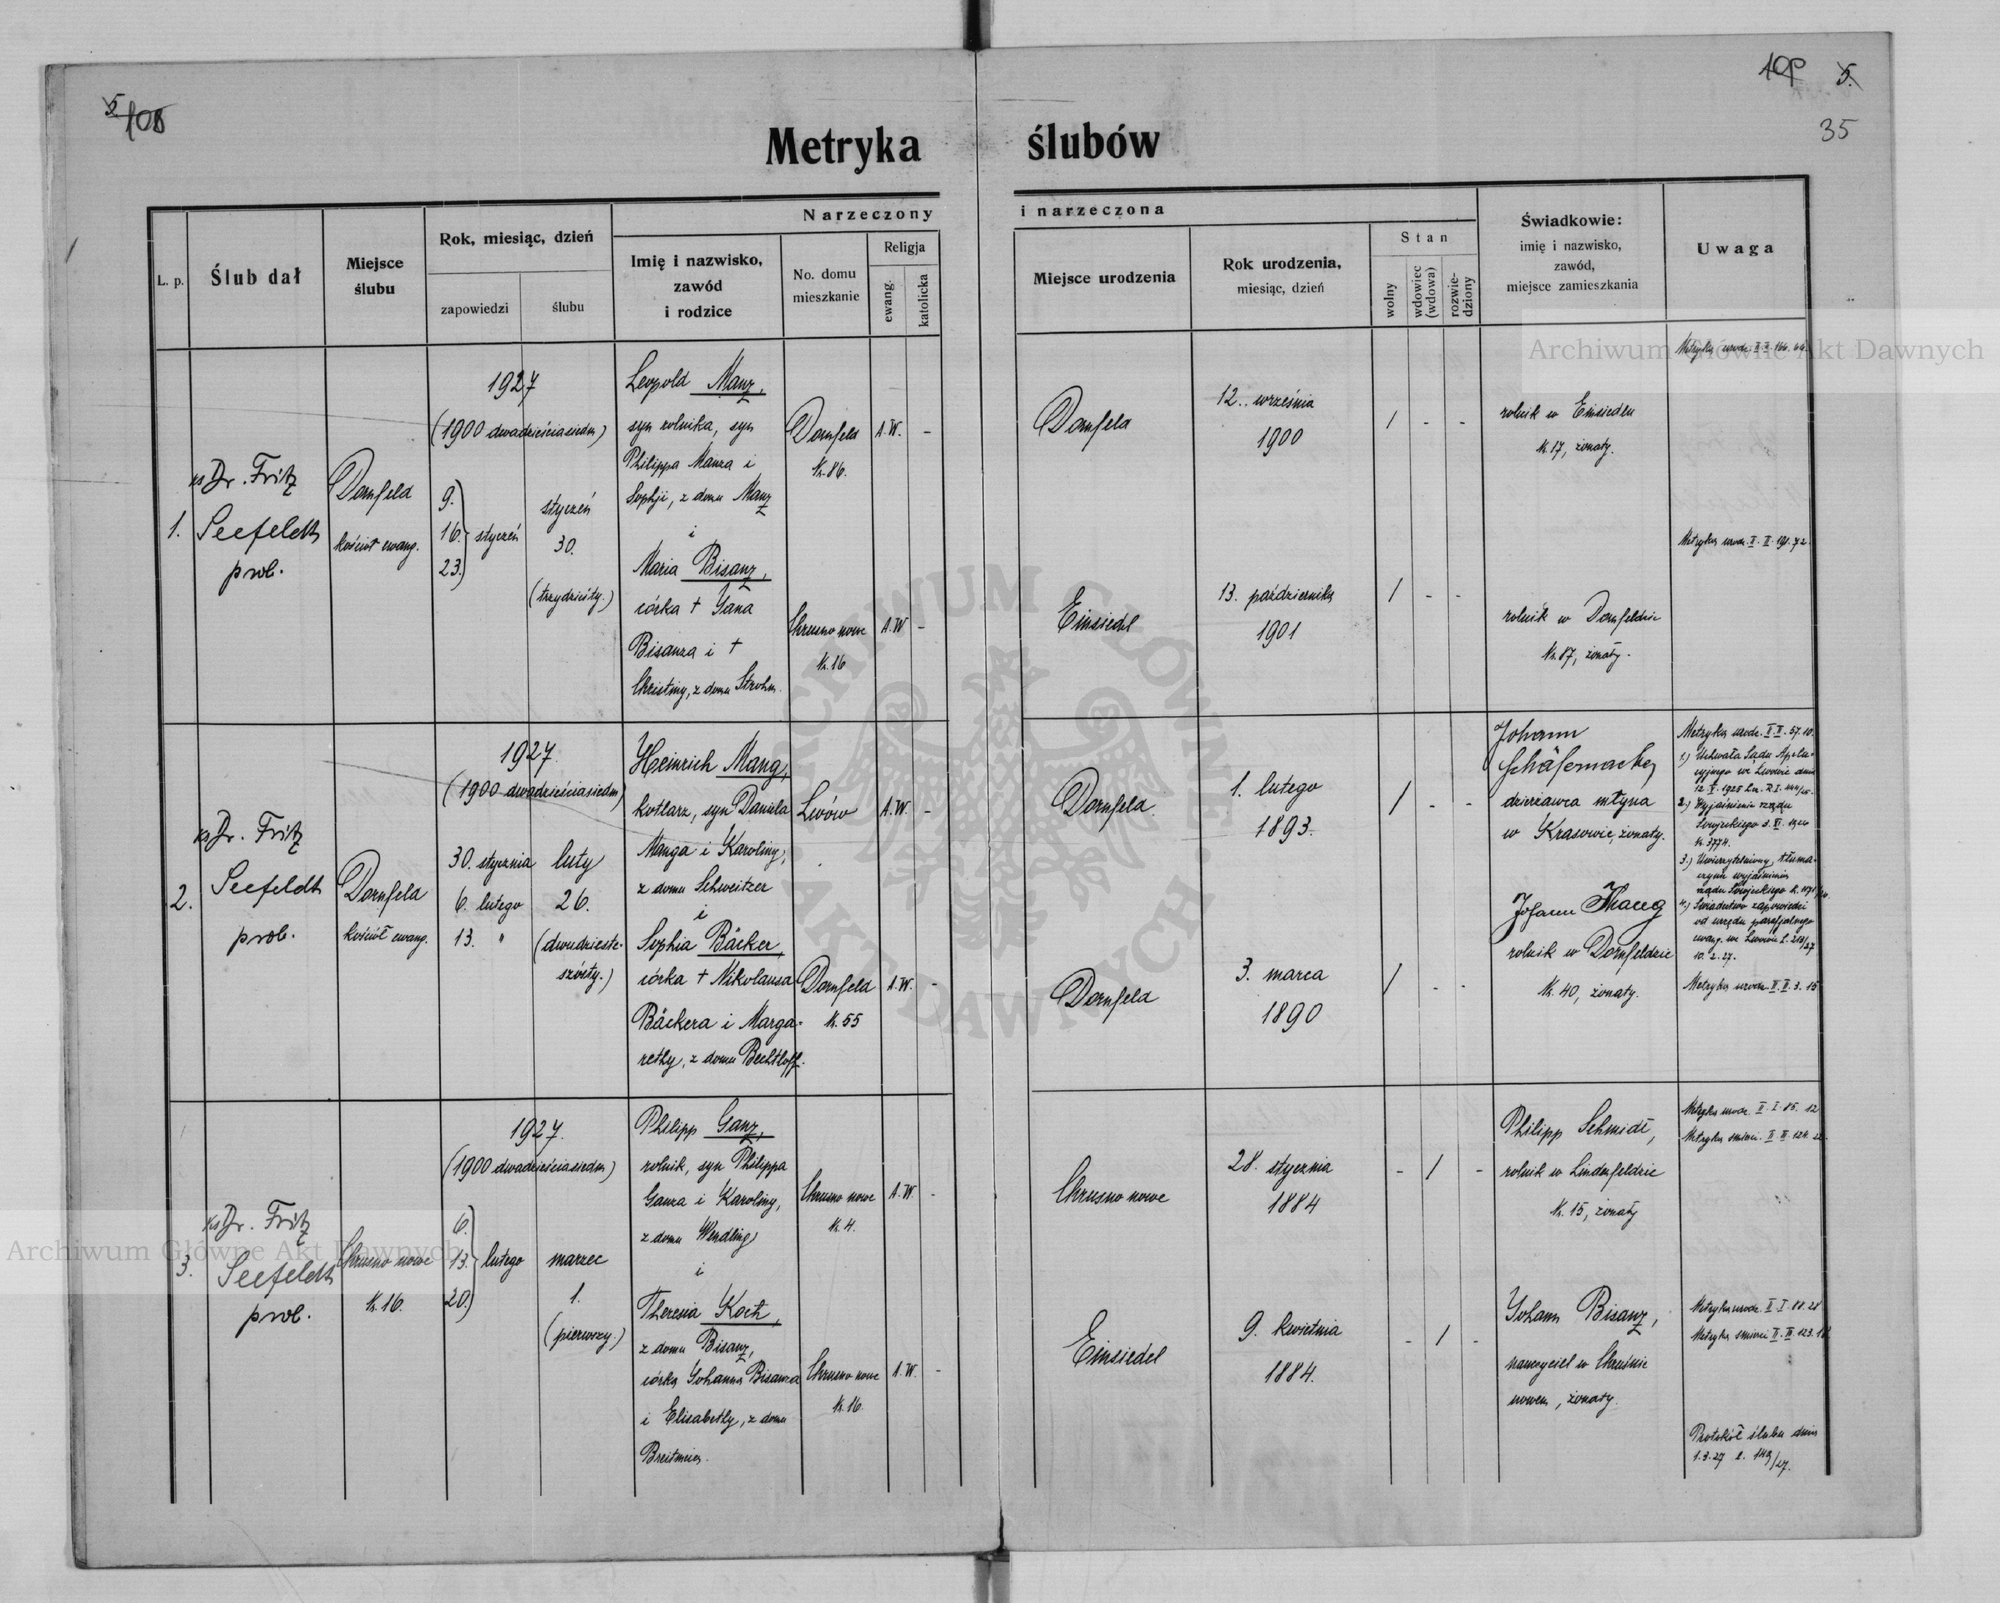 5
108
109 5.
35
Metryka ślubów
L. p.
Ślub dał
Miejsce
ślubu
Rok, miesiąc, dzień
zapowiedzi
ślubu
Narzeczony
i narzeczona
Imię i nazwisko,
zawód
i rodzice
No. domu
mieszkanie
Religja
ewang.
katolicka
Miejsce urodzenia
Rok urodzenia,
miesiąc, dzień
Stan
wolny
wdowiec
(wdowa)
rozwie-
dziony
Świadkowie:
imię i nazwisko,
zawód,
miejsce zamieszkania
Uwaga
1.
ks Dr. Fritz
Seefeldt
prob.
Dornfeld
kościół ewang.
1927
(1900 dwadzieścia siedm)
9.
16.
23.
styczeń
styczeń
30.
(trzydziesty.)
Leopold Manz,
syn rolnika, syn
Philippa Manza i
Sophji, z domu Manz
i
Maria Bisanz,
córka + Jana
Bisanza i +
Christiny, z domu Strohm.
Dornfeld
Nr. 86.
A.W. -
Chrusno nowe
Nr. 16
A.W -
Dornfeld
12. września
1900
/ - -
rolnik w Einsiedlu
Nr. 17, żonaty.
Einsiedel
13. października
1901
/ - -
rolnik w Dornfeldzie
Nr. 87, żonaty.
2.
ks Dr. Fritz
Seefeldt
prob.
Dornfeld
kościół ewang.
1927.
(1900 dwadzieścia siedm)
30. stycznia
6. lutego
13. "
luty
26.
(dwudzieste-
szósty.)
Heinrich Mang,
kotlarz, syn Daniela
Manga i Karoliny,
z domu Schweitzer
i
Sophia Bäcker,
córka + Nikolausa
Bäckera i Marga-
rethy, z domu Bechtloff.
Lwów
A.W. -
Dornfeld
Nr. 55
A.W. -
Dornfeld.
1. lutego
1893.
/ - -
Dornfeld
3. marca
1890
/ - -
Johann
dzierżawca młyna
w Krasowie, żonaty.
Johann Mang
rolnik w Dornfeldzie
Nr. 40, żonaty.
Metryka urodz.
1.) Uchwała Sądu Apela-
cyjnego we Lwowie dnia
2.) Wyjaśnienie rządu
3.) Uwierzytelniony tłuma-
czenie wyjaśnienia
4.) Świadectwo zapowiedzi
od urzędu parafjalnego
ewang. we Lwowie
10. 2. 27.
Metryka urodz. II. II. 3. 15
3.
ks Dr. Fritz
Seefeldt
prob.
Chrusno nowe
Nr. 16.
1927.
(1900 dwadzieścia siedm)
6.
13.
20.
lutego
marzec
1.
(pierwszy.)
Philipp Ganz,
rolnik, syn Philippa
Ganza i Karoliny,
z domu Wendling
i
Theresia Koch,
z domu Bisanz,
córka Johanna Bisanza
i Elisabethy, z domu
Breitmeier.
Chrusno nowe
Nr. 4.
A.W. -
Chrusno nowe
Nr. 16.
A.W. -
Chrusno nowe
28. stycznia
1884
- / -
Einsiedel
9. kwietnia
1884.
- / -
Philipp Schmidt,
rolnik w Lindenfeldzie
Nr. 15, żonaty
Johann Bisanz,
nauczyciel w Chruśnie
nowem, żonaty.
Metryka urodz. II. I. 85. 12
Metryka śmierci
Metryka urodz. II. I. 88. 28
Metryka śmierci
Protokół ślubu dnia
1. 3. 27
Archiwum Główne Akt Dawnych
Archiwum Główne Akt Dawnych
ARCHIWUM GŁÓWNE
AKT DAWNYCH